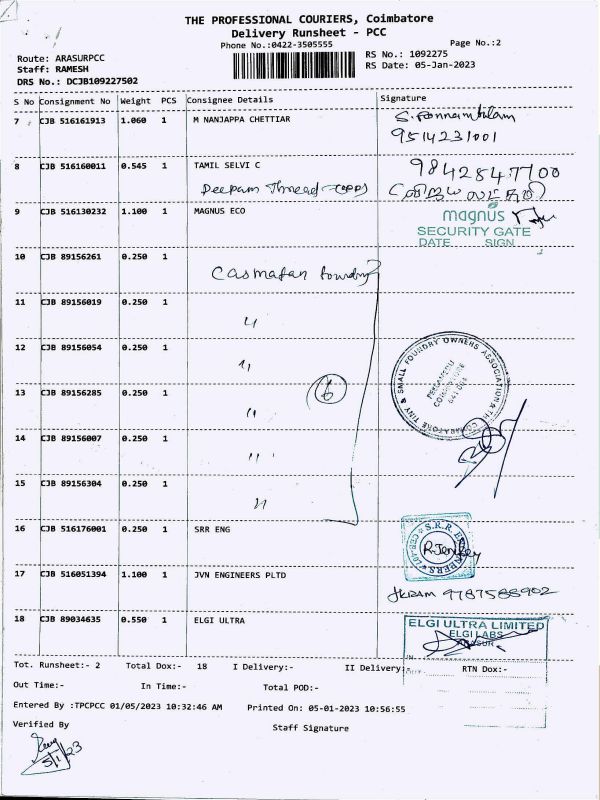 THE PROFESSIONAL COURIERS, Coimbatore
Delivery Runsheet - PCC
Phone No.:0422-3505555
Page No.:2
Route: ARASURPCC
Staff: RAMESH
DRS No.: DCJB109227502
RS No.: 1092275
RS Date: 05-Jan-2023
S No Consignment No Weight PCS Consignee Details Signature
7 CJB 516161913 1.060 1 M NANJAPPA CHETTIAR
9514231001
8 CJB 516160011 0.545 1 TAMIL SELVI C 9842847700
Deepam Thread
9 CJB 516130232 1.100 1 MAGNUS ECO
magnus
SECURITY GATE
DATE SIGN
10 CJB 89156261 0.250 1
11 CJB 89156019 0.250 1
12 CJB 89156054 0.250 1
13 CJB 89156285 0.250 1
6
14 CJB 89156007 0.250 1
15 CJB 89156304 0.250 1
COIMBATORE TINY & SMALL FOUNDRY OWNERS ASSOCIATION
16 CJB 516176001 0.250 1 SRR ENG
S.R.R. ENGINEERS
17 CJB 516051394 1.100 1 JVN ENGINEERS PLTD
9787588902
18 CJB 89034635 0.550 1 ELGI ULTRA
ELGI ULTRA LIMITED
ELGI LABS
Tot. Runsheet:- 2 Total Dox:- 18 I Delivery:- II Delivery:- RTN Dox:-
Out Time:- In Time:- Total POD:-
Entered By :TPCPCC 01/05/2023 10:32:46 AM Printed On: 05-01-2023 10:56:55
Verified By Staff Signature
5/1/23